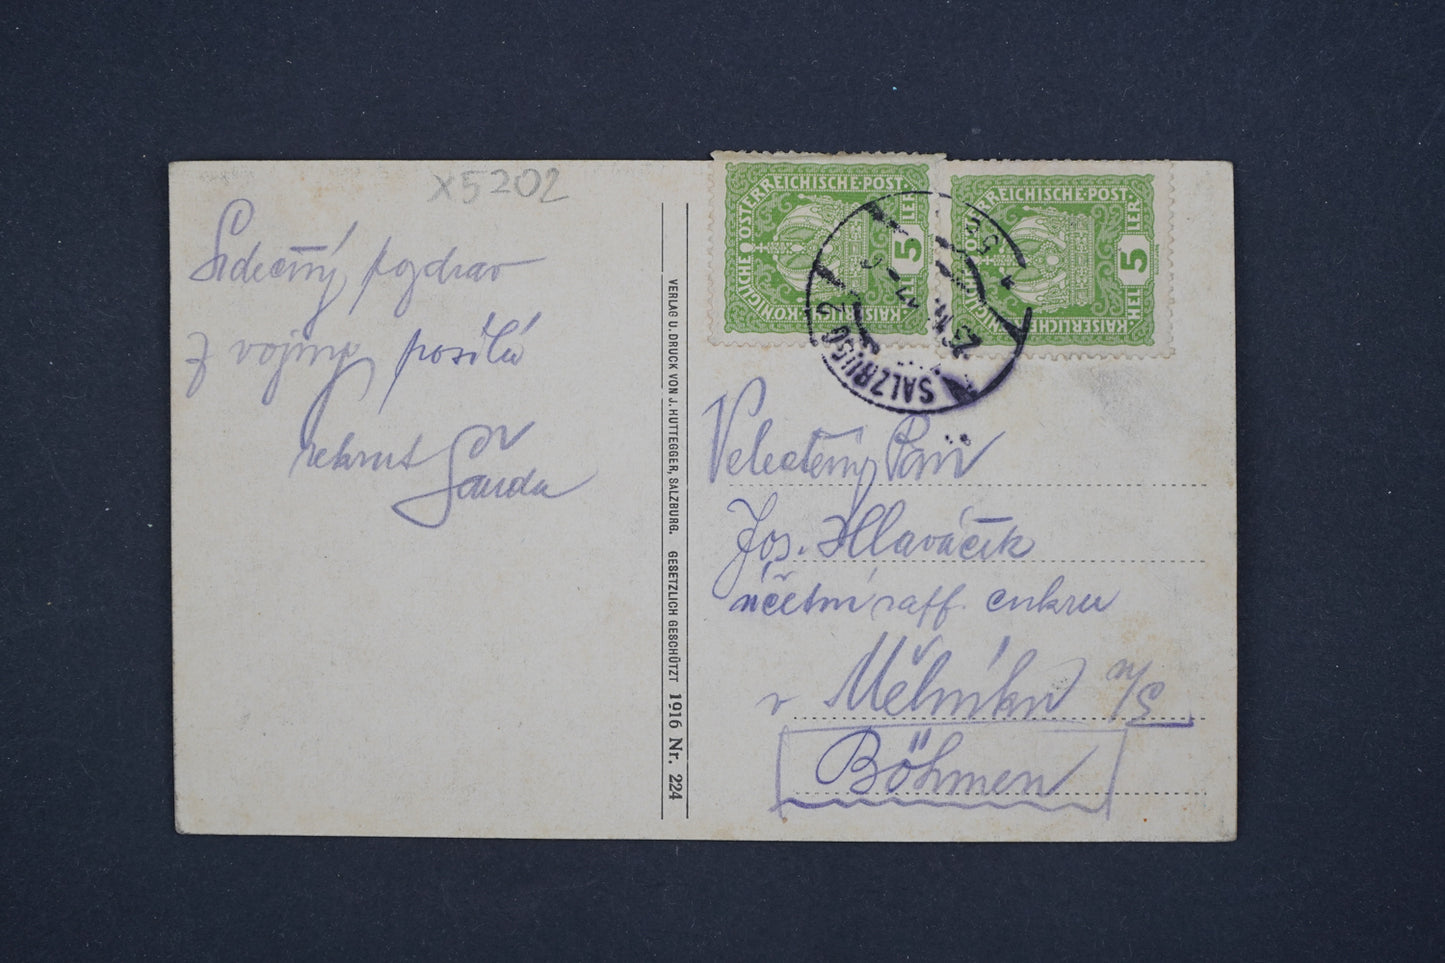 X5202
Srdečný pozdrav
z vojny posílá
rekrut
Šanda
VERLAG U. DRUCK VON J. HUTTEGGER, SALZBURG. GESETZLICH GESCHÜTZT 1916 Nr. 224
KAISERLICHE KÖNIGLICHE ÖSTERREICHISCHE·POST·
5 HELLER
KAISERLICHE KÖNIGLICHE ÖSTERREICHISCHE·POST·
5 HELLER
SALZBURG 2
Velectěný Pán
Jos. Hlaváček
účetní raff. cukru
v Mělníku n/L
Böhmen